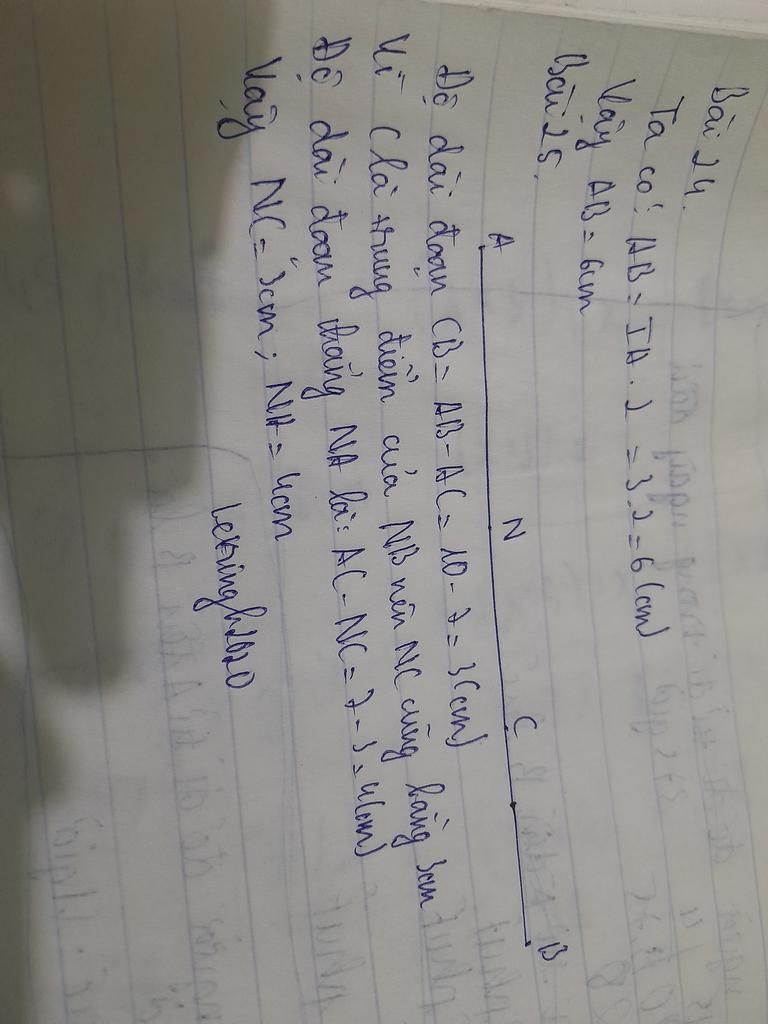 Bài 24.
Ta có: AB = IA . 2 = 3.2 = 6 (cm)
Vậy AB = 6cm
Bài 25.
A N C B
Độ dài đoạn CB = AB - AC = 10 - 7 = 3 (cm)
Vì C là trung điểm của NB nên NC cũng bằng 3cm
Độ dài đoạn thẳng NA là: AC - NC = 7 - 3 = 4 (cm)
Vậy NC = 3cm; NA = 4cm